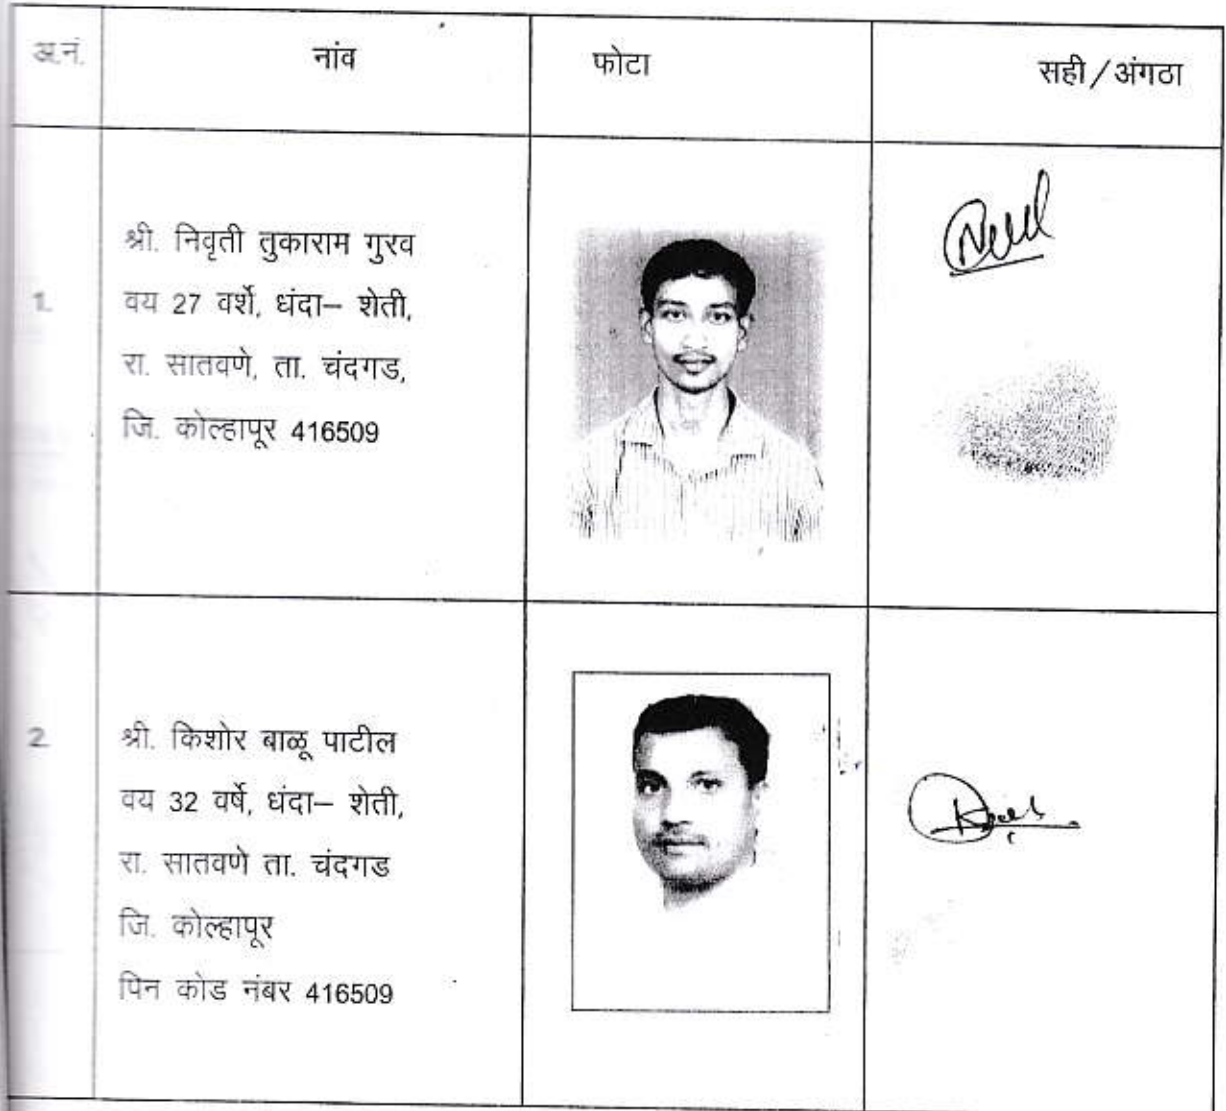 अ.नं. नांव फोटा सही/अंगठा
1. श्री. निवृती तुकाराम गुरव
वय 27 वर्शे, धंदा– शेती,
रा. सातवणे, ता. चंदगड,
जि. कोल्हापूर 416509
2 श्री. किशोर बाळू पाटील
वय 32 वर्षे, धंदा– शेती,
रा. सातवणे ता. चंदगड
जि. कोल्हापूर
पिन कोड नंबर 416509